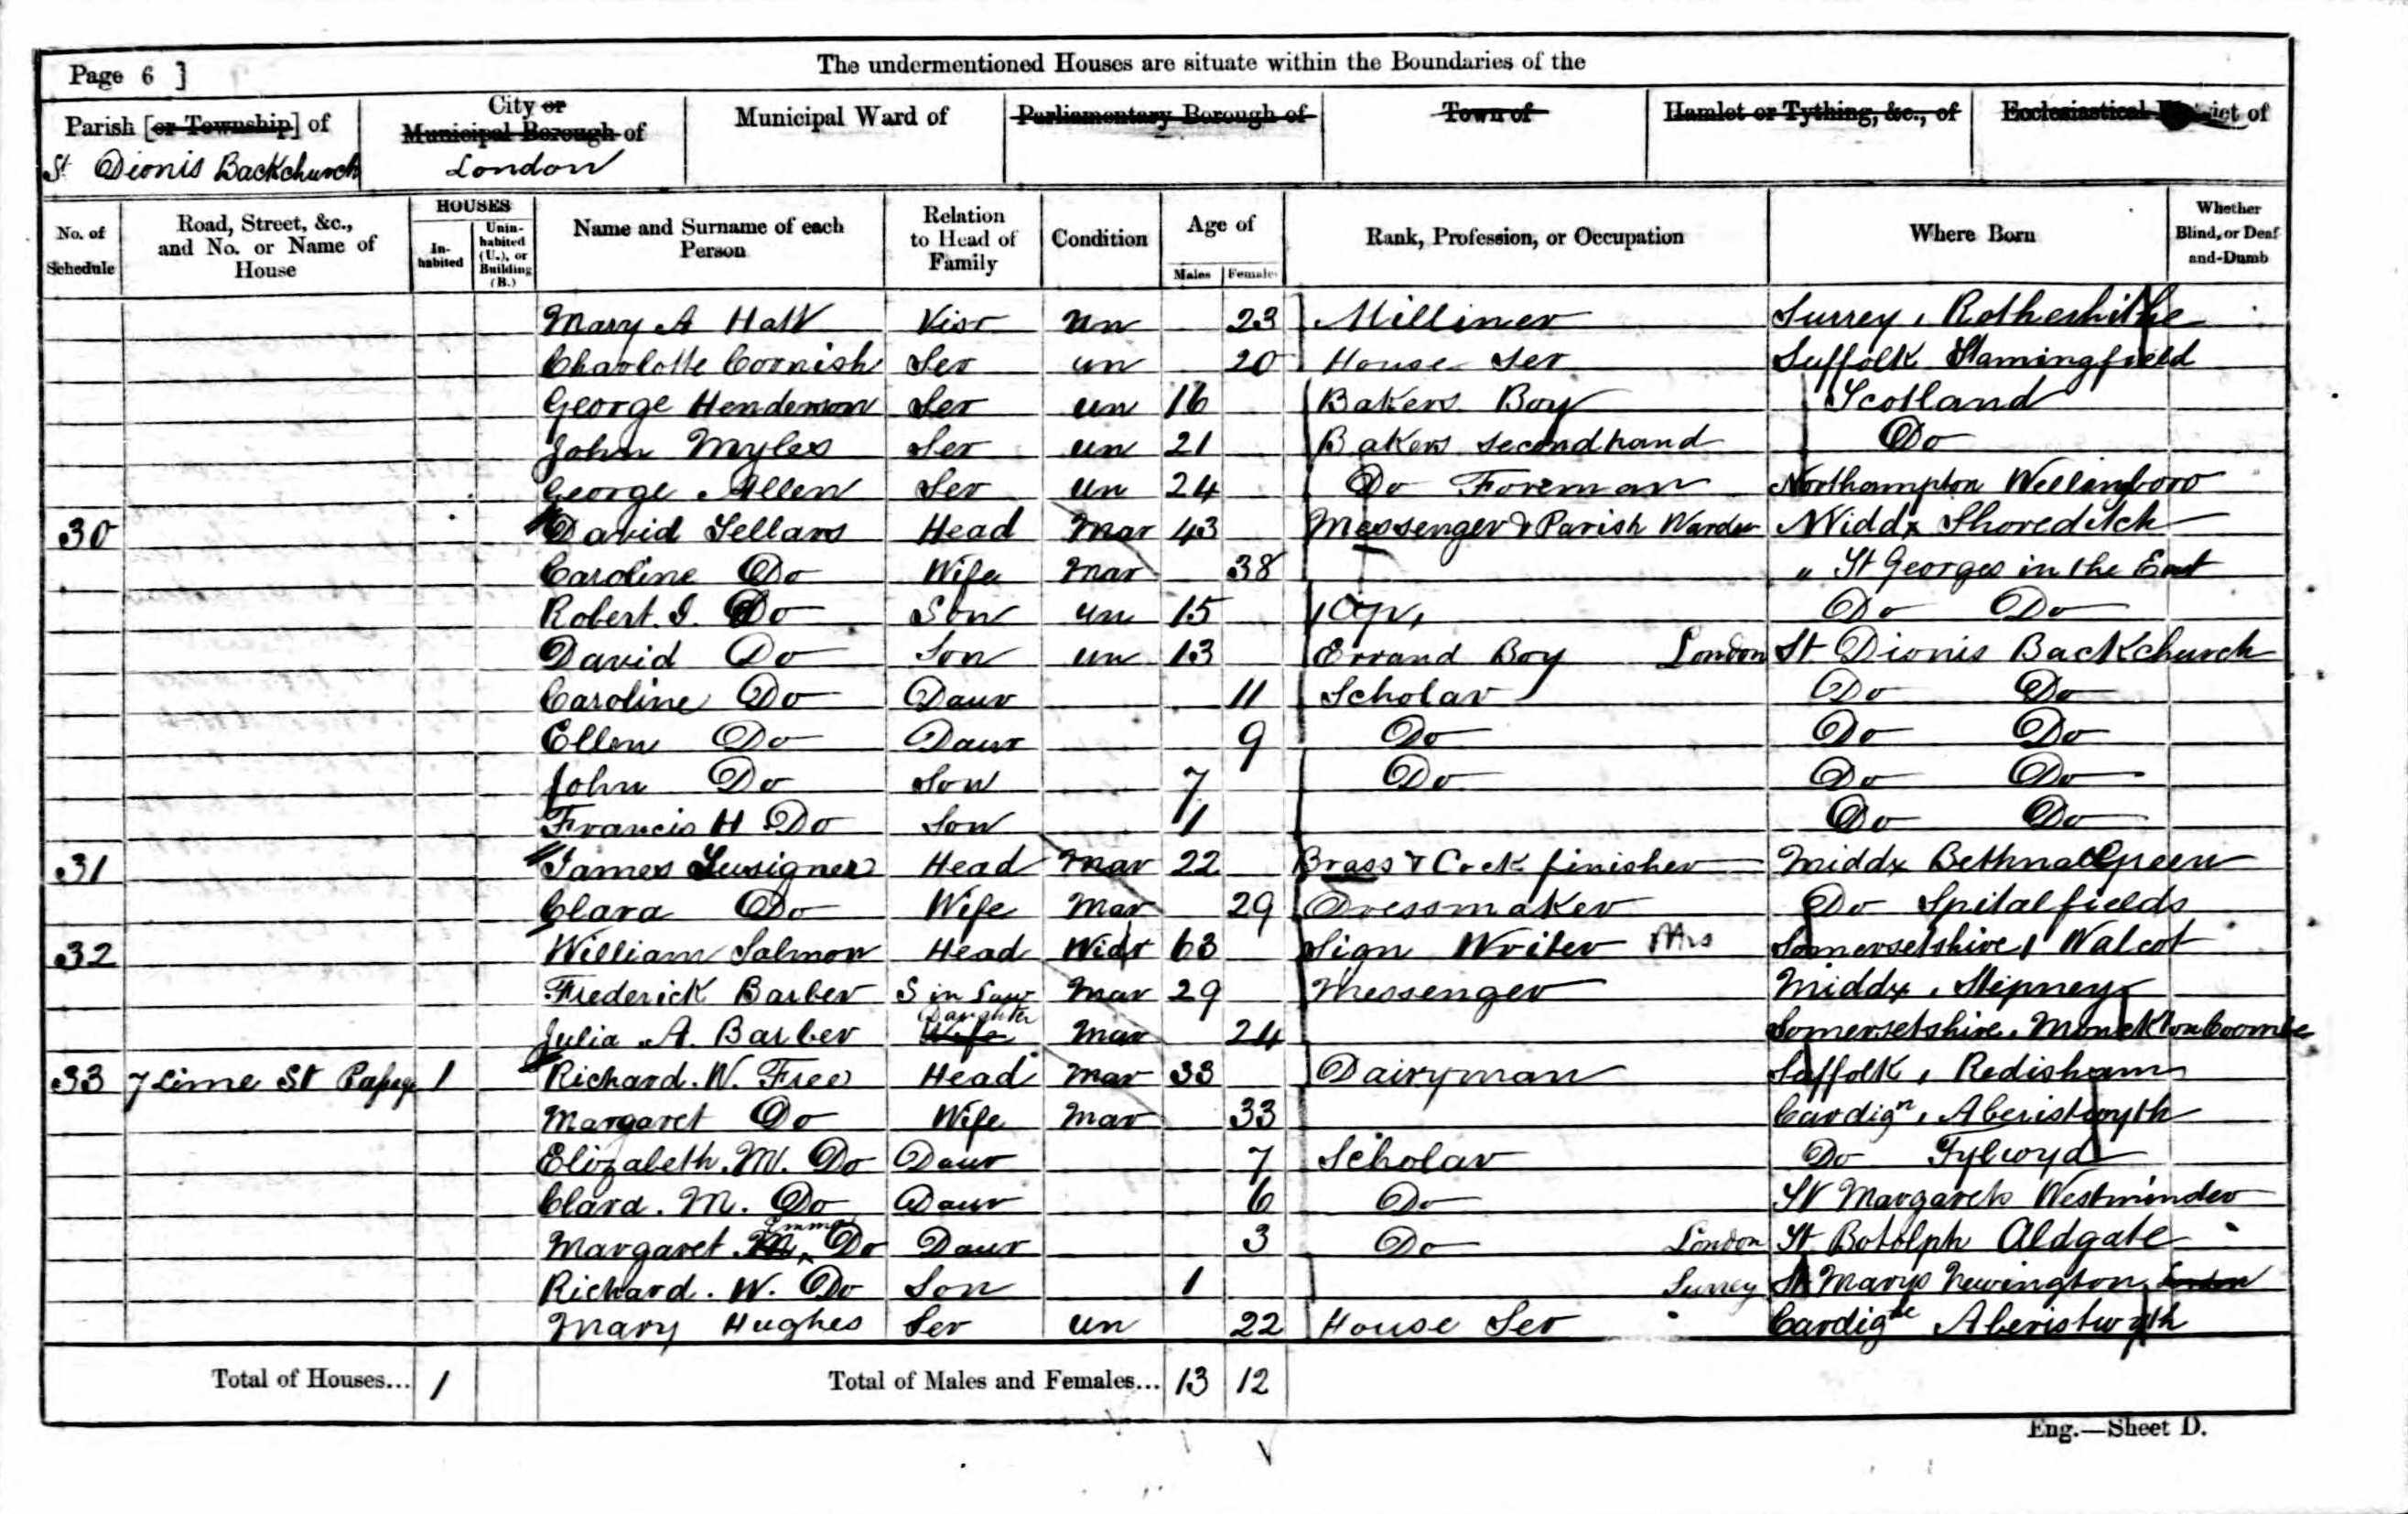 Page 6 ]
The undermentioned Houses are situate within the Boundaries of the
Parish [or Township] of
City or Municipal Borough of
Municipal Ward of
Parliamentary Borough of
Town of
Hamlet or Tything, &c., of
Ecclesiastical District of
St Dionis Backchurch
London
No. of Schedule
Road, Street, &c., and No. or Name of House
HOUSES
In-habited
Unin-habited (U.), or Building (B.)
Name and Surname of each Person
Relation to Head of Family
Condition
Age of
Males
Females
Rank, Profession, or Occupation
Where Born
Whether Blind, or Deaf-and-Dumb
Mary A Hall Visr Un 23 Milliner Surrey, Rotherhithe
Charlotte Cornish Ser un 20 House Ser Suffolk
George Henderson Ser un 16 Bakers Boy Scotland
John Myles Ser un 21 Bakers secondhand Do
George Allen Ser un 24 Do Foreman Northampton Wellingboro
30 David Sellars Head Mar 43 Messenger & Parish Warder Middx Shoreditch
Caroline Do Wife Mar 38 " St Georges in the East
Robert. J. Do Son un 15 Do Do
David Do Son un 13 Errand Boy London St. Dionis Backchurch
Caroline Do Daur 11 Scholar Do Do
Ellen Do Daur 9 Do Do Do
John Do Son 7 Do Do Do
Francis H Do Son 1 Do Do
31 James Head Mar 22 Brass & Cock finisher Middx Bethnal Green
Clara Do Wife Mar 29 Dressmaker Do Spitalfields
32 William Salmon Head Widr 63 Sign Writer Somersetshire, Walcot
Frederick Barber S in Law Mar 29 Messenger Middx, Stepney
Julia A. Barber Wife Daughter Mar 24 Somersetshire, Monckton Coombe
33 7 Lime St Pasage 1 Richard. W. Free Head Mar 33 Dairyman Suffolk, Redisham
Margaret Do Wife Mar 33 Cardign, Aberistwyth
Elizabeth. M. Do Daur 7 Scholar Do
Clara. M. Do Daur 6 Do St Margarets Westminder
Margaret M. Emma Do Daur 3 Do London St. Botolph Aldgate
Richard. W. Do Son 1 Surrey St Marys Newington London
Mary Hughes Ser un 22 House Ser Cardigne Aberistwyth
Total of Houses... 1 Total of Males and Females... 13 12
Eng.—Sheet D.